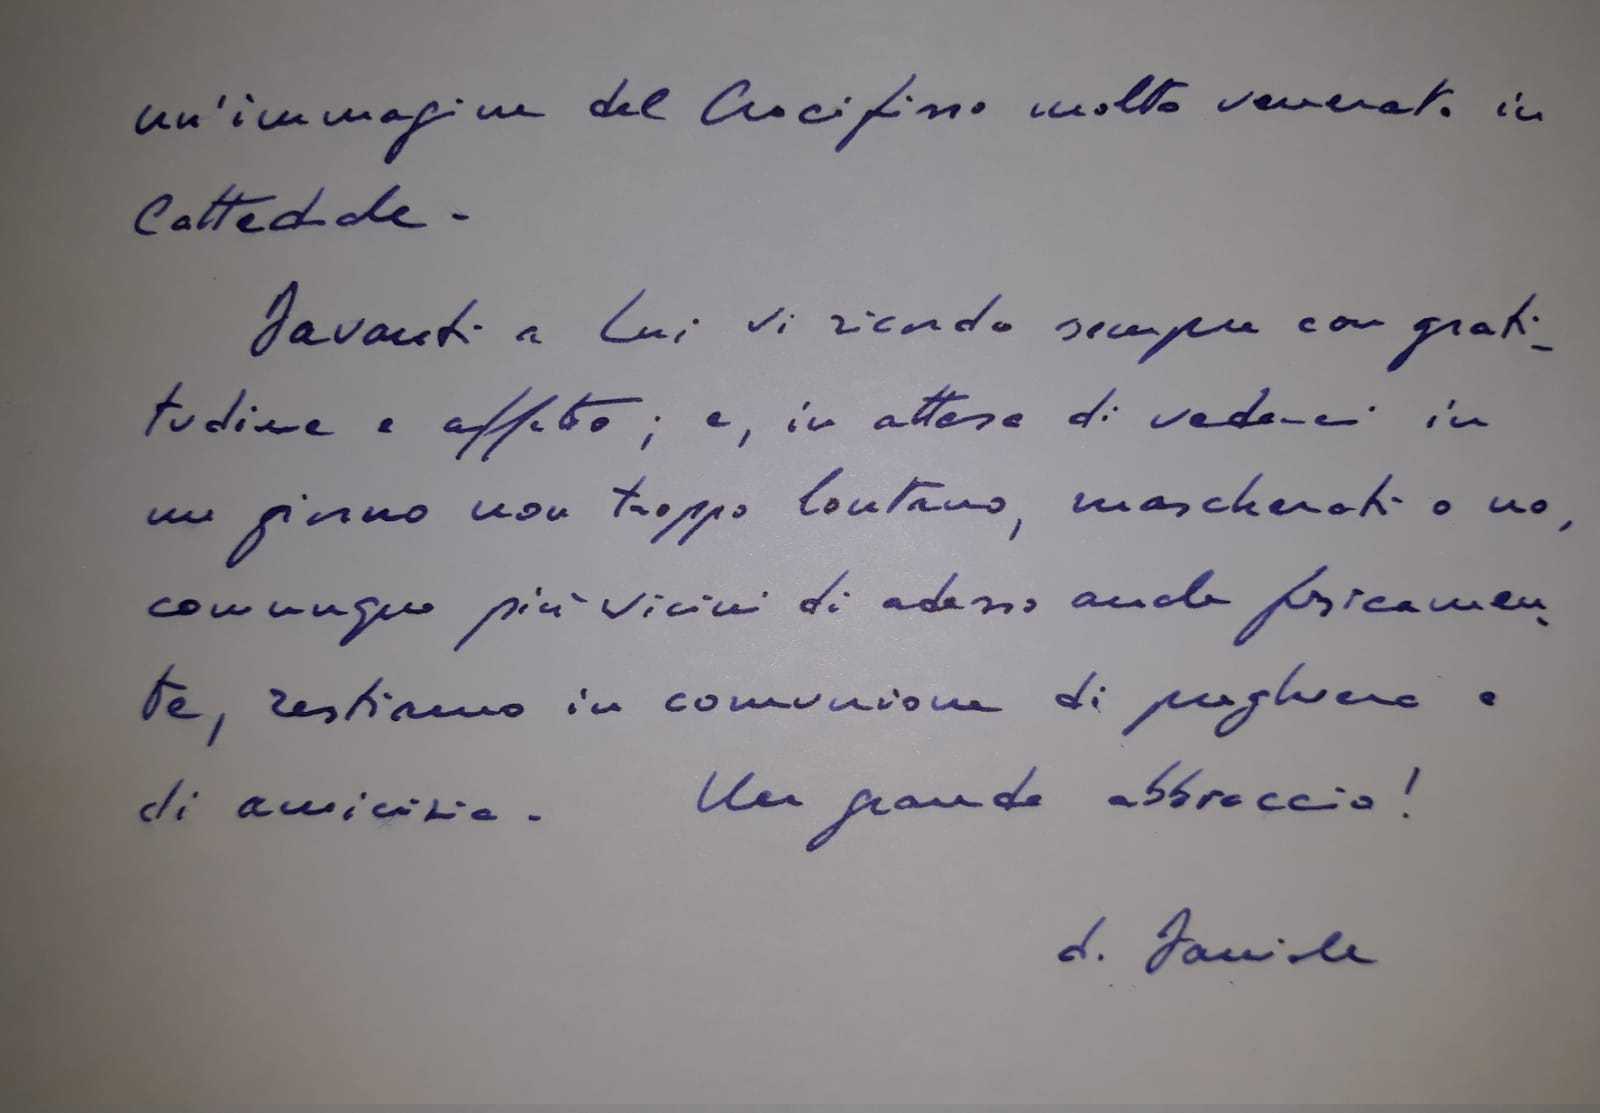 un'immagine del Crocifisso molto venerato in
Cattedrale -
Davanti a Lui vi ricordo sempre con grati-
tudine e affetto; e, in attesa di vederci in
un giorno non troppo lontano, mascherati o no,
comunque più vicini di adesso anche fisicamen-
te, restiamo in comunione di preghiera e
di amicizia. Un grande abbraccio!
d. Daniele